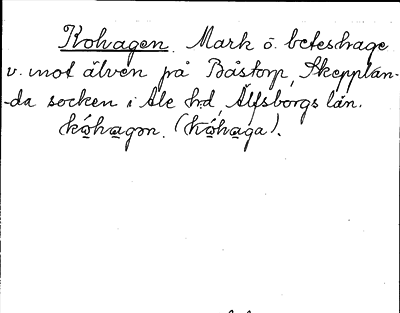 Kohagen. Mark o. beteshage
v. mot älven på Båstorp, Skepplan-
-da socken i Ale hd, Älfsborgs län.
kóhagən. (kóhaga).